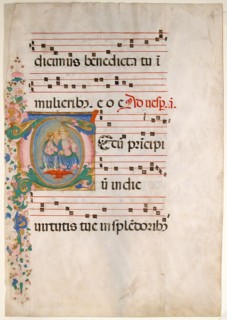 dicimus benedicta tu ī
mulieribꝫ. e o e Ad uesp̄. ā.
Tecū prīcipi
ū in die
uirtutis tue in splēdoribꝫ